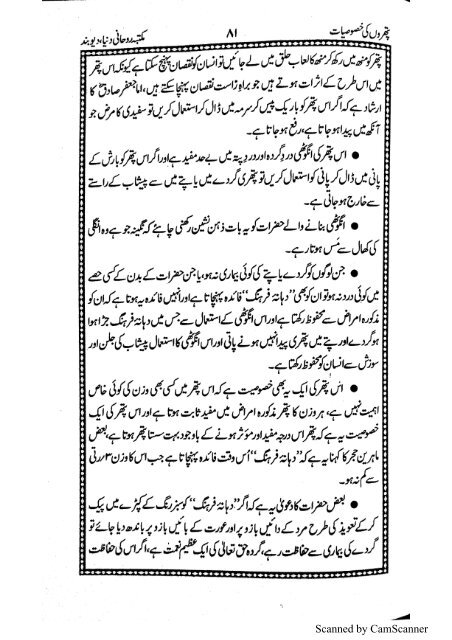 پتھروں کی خصوصیات ۸۱ مکتبہ روحانی دنیا، دیوبند
پتھر کو منھ میں رکھ کر منھ کا لعاب حلق میں لے جائیں تو انسان کو نقصان پہنچ سکتا ہے کیونکہ اس پتھر
میں اس طرح کے اثرات ہوتے ہیں جو براہ راست نقصان پہنچا سکتے ہیں، امام جعفر صادقؓ کا
ارشاد ہے کہ اگر اس پتھر کو باریک پیس کر سرمہ میں ڈال کر استعمال کریں تو سفیدی کا مرض جو
آنکھ میں پیدا ہو جاتا ہے، رفع ہو جاتا ہے۔
● اس پتھر کی انگوٹھی درد گردہ اور درد پتہ میں بے حد مفید ہے اور اگر اس پتھر کو بارش کے
پانی میں ڈال کر پانی کو استعمال کریں تو پتھری گردے میں یا پتے میں سے پیشاب کے راستے
سے خارج ہو جاتی ہے۔
● انگوٹھی بنانے والے حضرات کو یہ بات ذہن نشین رکھنی چاہئے کہ نگینہ جو ہے وہ انگلی
کی کھال سے مَس ہوتا رہے۔
● جن لوگوں کو گردے یا پتے کی کوئی بیماری نہ ہو، یا جن حضرات کے بدن کے کسی حصے
میں کوئی درد نہ ہو تو ان کو بھی ”دہانۂ فرہنگ“ فائدہ پہنچاتا ہے اور انہیں فائدہ یہ ہوتا ہے کہ ان کو
مذکورہ امراض سے محفوظ رکھتا ہے اور اس انگوٹھی کے استعمال سے جس میں دہانۂ فرہنگ جڑا ہوا
ہو گردے اور پتے میں پتھری پیدا نہیں ہونے پاتی اور اس انگوٹھی کا استعمال پیشاب کی جلن اور
سوزش سے انسان کو محفوظ رکھتا ہے۔
● اس پتھر کی ایک یہ بھی خصوصیت ہے کہ اس پتھر میں کسی بھی وزن کی کوئی خاص
اہمیت نہیں ہے، ہر وزن کا پتھر مذکورہ امراض میں مفید ثابت ہوتا ہے اور اس پتھر کی ایک
خصوصیت یہ ہے کہ پتھر اس درجہ مفید اور مؤثر ہونے کے باوجود بہت سستا پتھر ہوتا ہے، بعض
ماہرین حجر کا کہنا یہ ہے کہ ”دہانۂ فرہنگ“ اُس وقت فائدہ پہنچاتا ہے جب اس کا وزن ۱۳ رتی
سے کم نہ ہو۔
● بعض حضرات کا دعویٰ یہ ہے کہ اگر ”دہانۂ فرہنگ“ کو سبز رنگ کے کپڑے میں پیک
کرکے تعویذ کی طرح مرد کے دائیں بازو پر اور عورت کے بائیں بازو پر باندھ دیا جائے تو
گردے کی بیماری سے حفاظت رہے، گردہ حق تعالیٰ کی ایک عظیم نعمت ہے، اگر اس کی حفاظت
Scanned by CamScanner